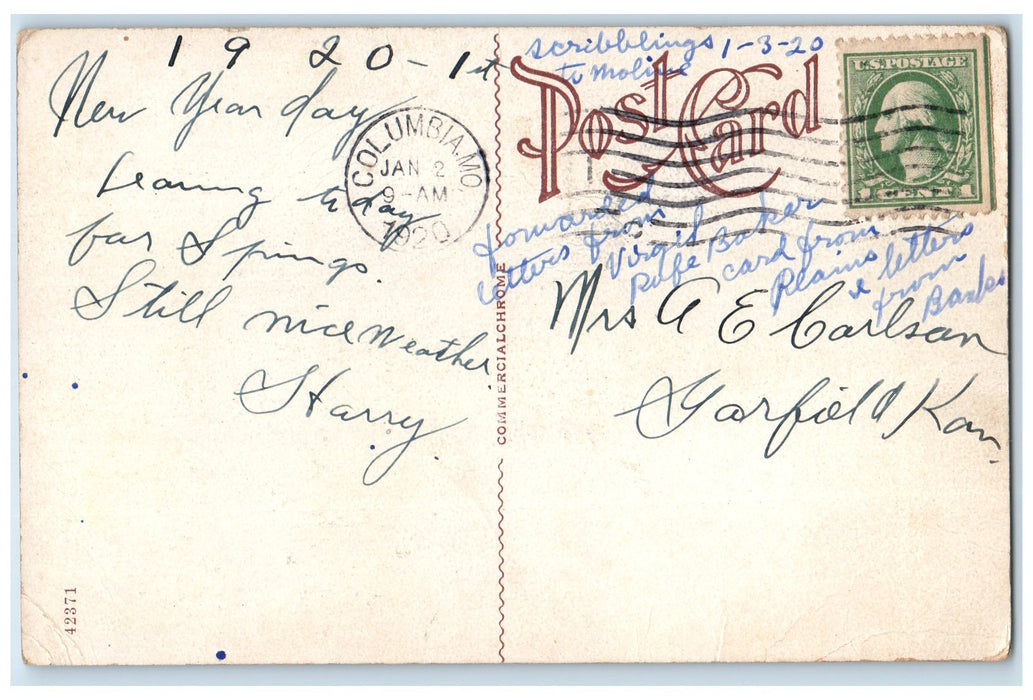 1 9 20 - 1st
New Year day
Leaving to day
for Springs.
Still nice Weather
Harry
COLUMBIA, MO.
JAN 2
9-AM
1920
scribblings 1-3-20
to Moline
Post Card
U.S. POSTAGE
1 CENTS 1
forwarded
letters from
Virgil
Rufe Baker
card from
Plains
& letters
from
Banks
Mrs A E Carlson
Garfield Kan.
COMMERCIALCHROME
42371